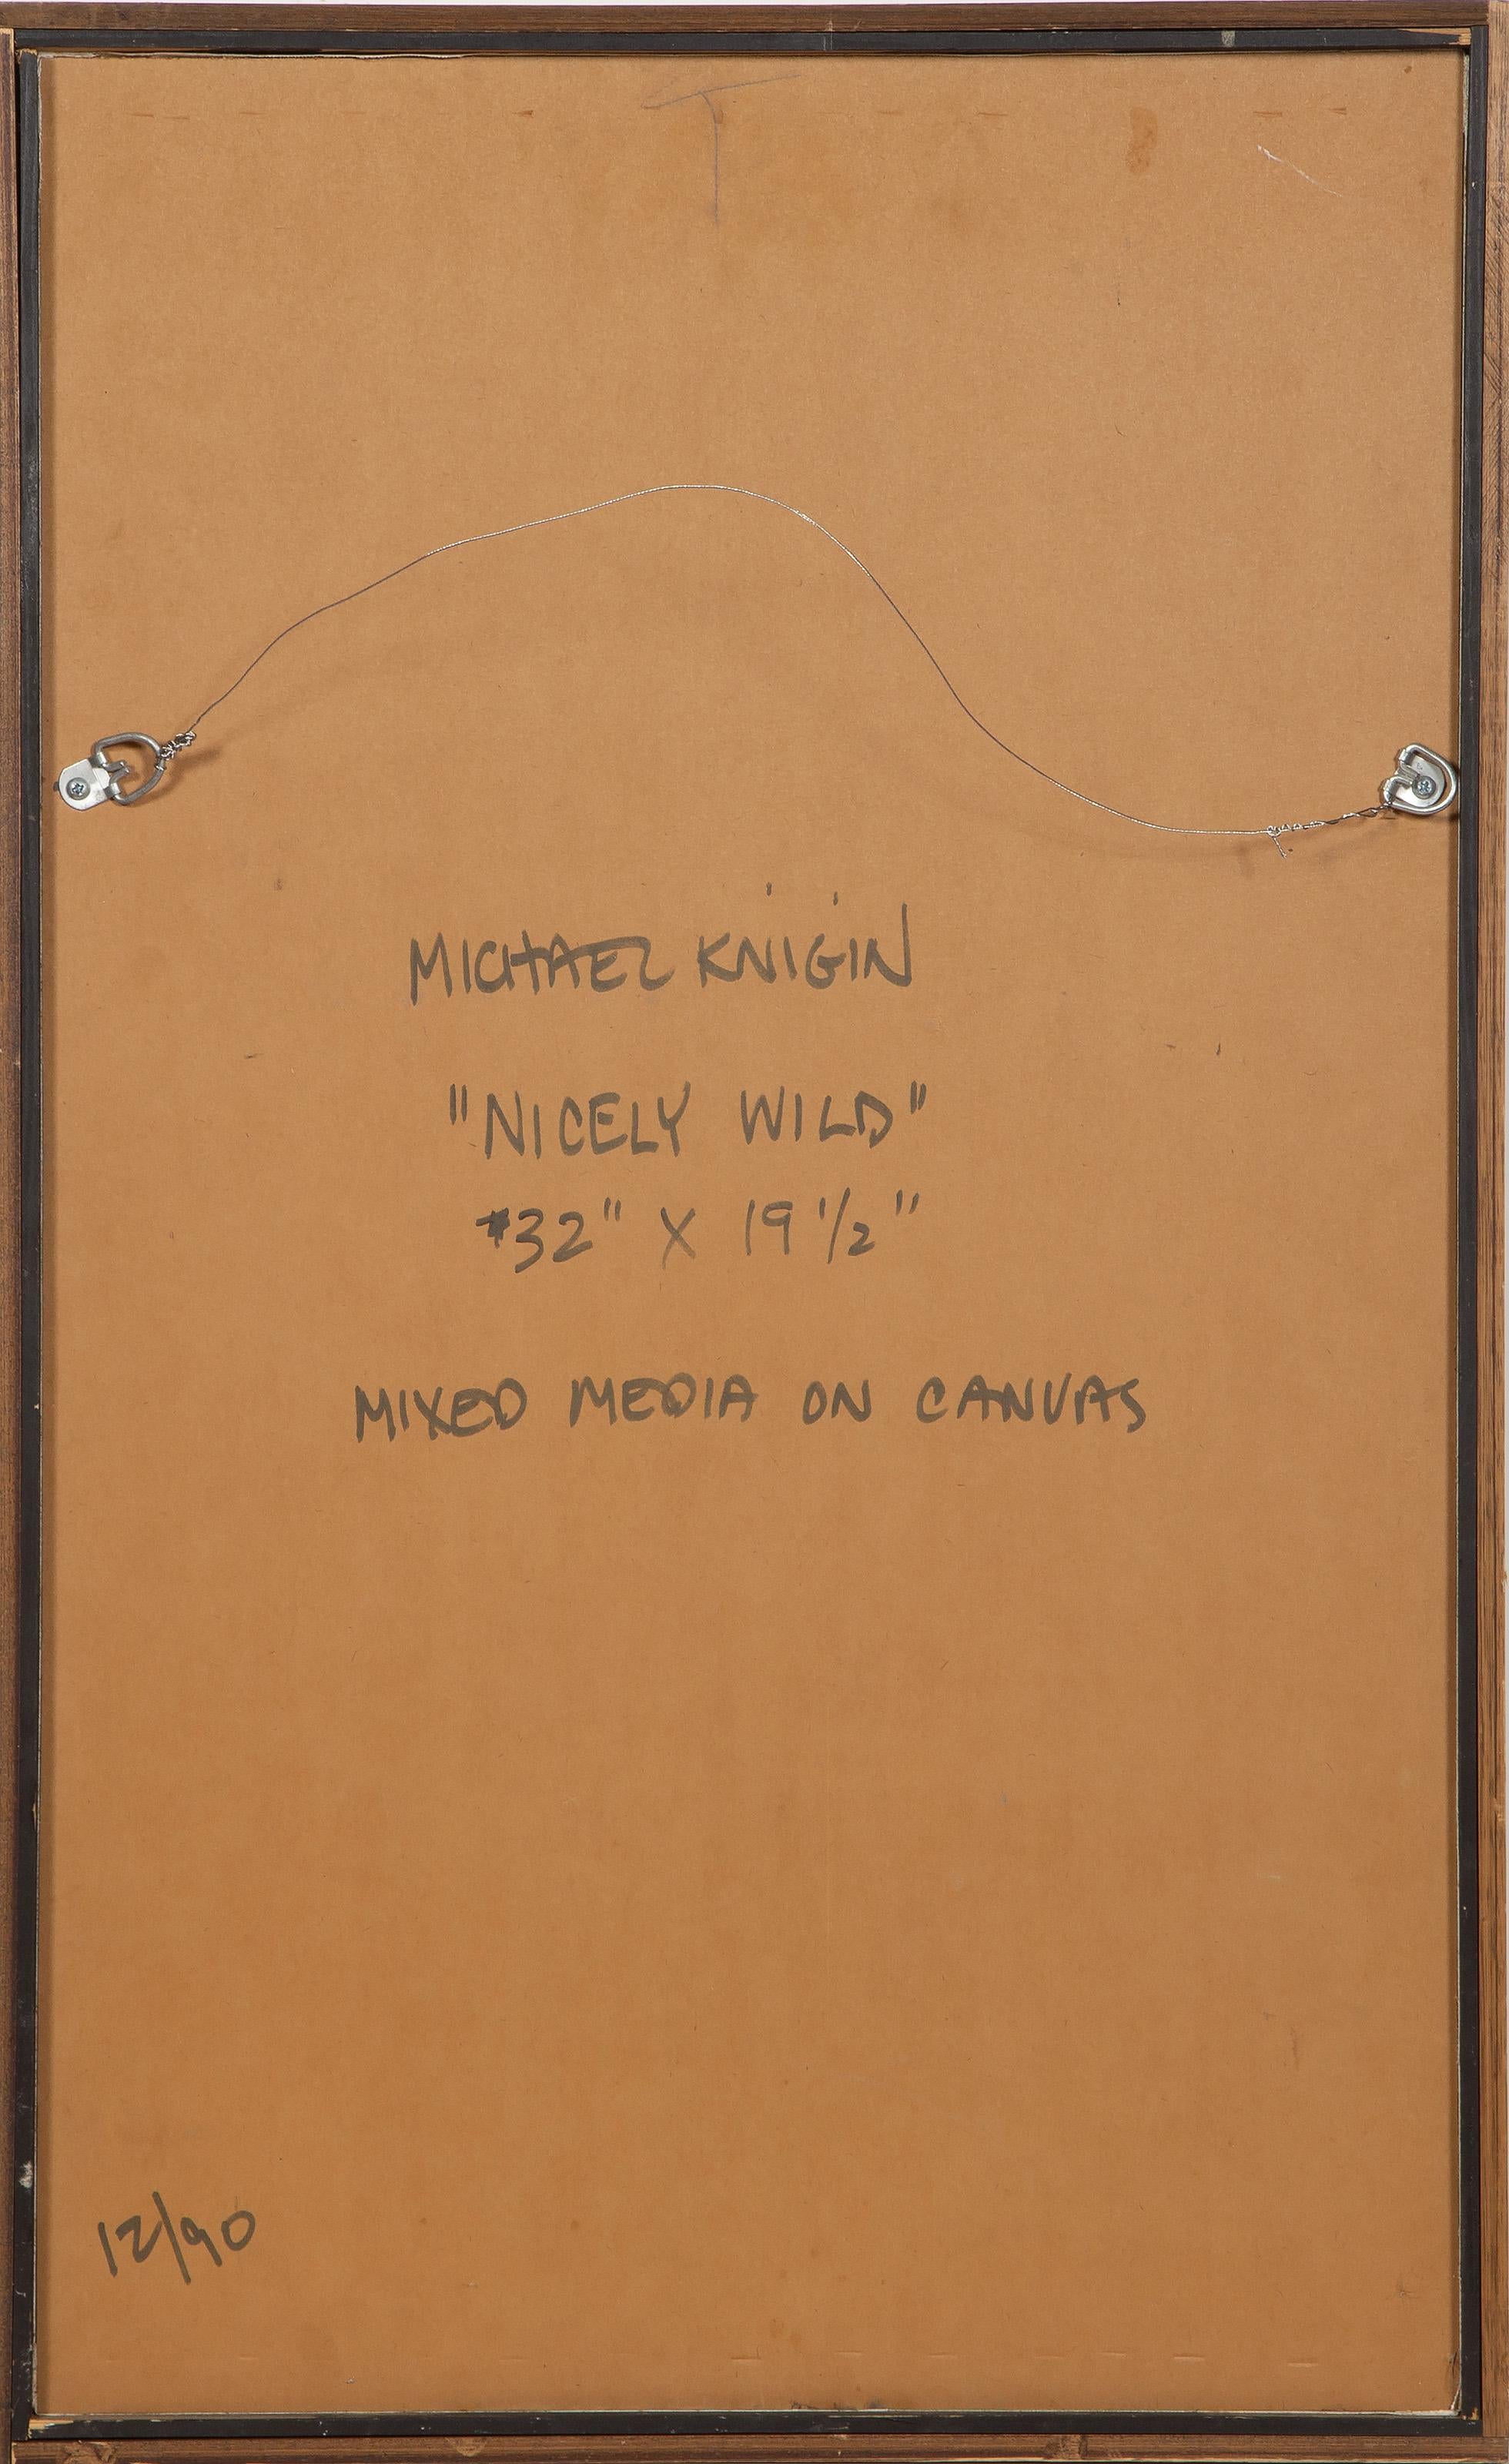 T
MICHAEL KNIGIN
"NICELY WILD"
32" X 19 1/2"
MIXED MEDIA ON CANVAS
12/90